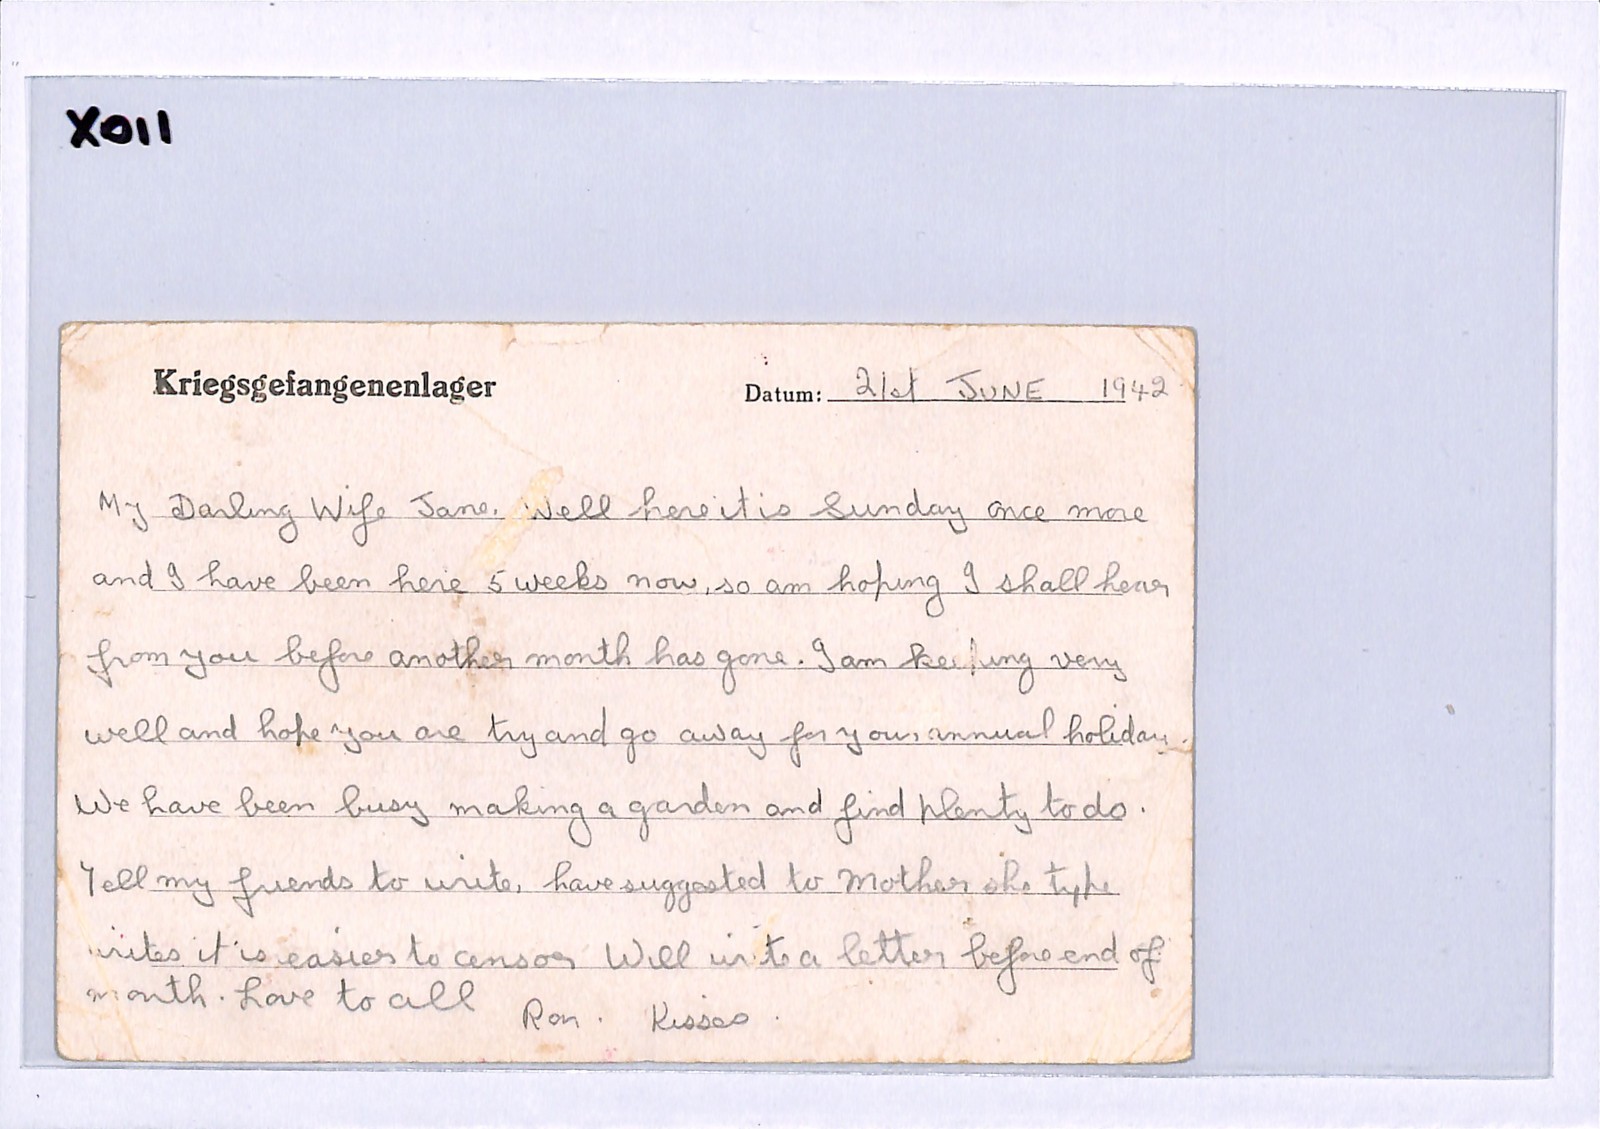 X011
Kriegsgefangenenlager Datum: 21st JUNE 1942
My Darling Wife Jane. Well here it is Sunday once more
and I have been here 5 weeks now, so am hoping I shall hear
from you before another month has gone. I am keeping very
well and hope you are try and go away for your annual holiday.
We have been busy making a garden and find plenty to do.
Tell my friends to write, have suggested to Mother she type
writes it is easier to censor Will write a letter before end of
month. Love to all
Ron. Kisses.